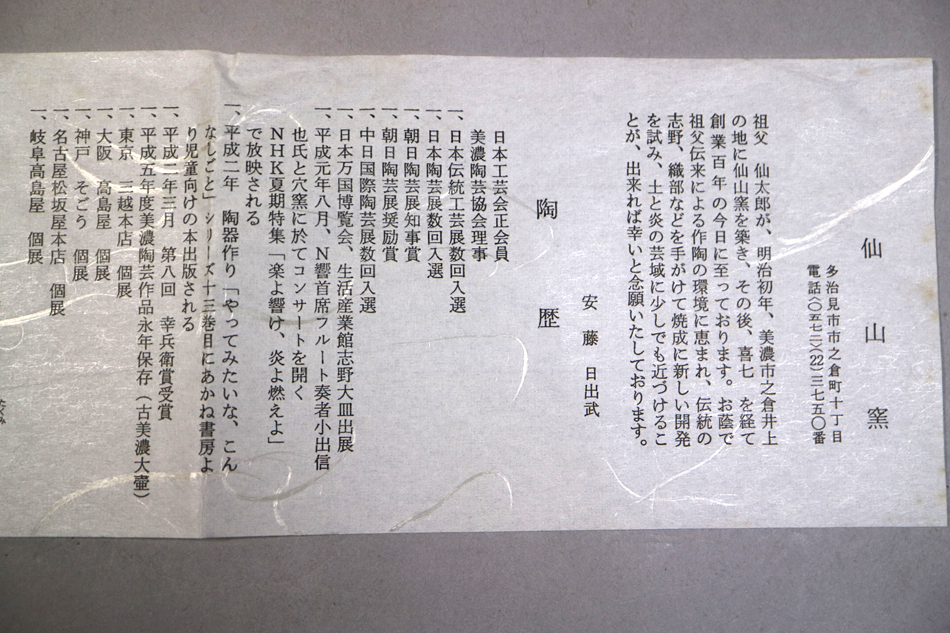 仙山窯
多治見市市之倉町十丁目
電話(〇五七二)(22)三七五〇番
祖父 仙太郎が、明治初年、美濃市之倉井上
の地に仙山窯を築き、その後、喜七 を経て
創業百年の今日に至っております。お蔭で
祖父伝来による作陶の環境に恵まれ、伝統の
志野、織部などを手がけて焼成に新しい開発
を試み、土と炎の芸域に少しでも近づけるこ
とが、出来れば幸いと念願いたしております。
安藤 日出武
陶歴
日本工芸会正会員
美濃陶芸協会理事
一、日本伝統工芸展数回入選
一、日本陶芸展数回入選
一、朝日陶芸展知事賞
一、朝日陶芸展奨励賞
一、中日国際陶芸展数回入選
一、日本万国博覧会、生活産業館志野大皿出展
一、平成元年八月、N響首席フルート奏者小出信
也氏と穴窯に於てコンサートを開く
NHK夏期特集「楽よ響け、炎よ燃えよ」
で放映される
一、平成二年 陶器作り「やってみたいな、こん
なしごと」シリーズ十三巻目にあかね書房よ
り児童向けの本出版される
一、平成二年三月 第八回 幸兵衛賞受賞
一、平成五年度美濃陶芸作品永年保存(古美濃大壷)
一、東京 三越本店 個展
一、大阪 高島屋 個展
一、神戸 そごう 個展
一、名古屋松坂屋本店 個展
一、岐阜高島屋 個展